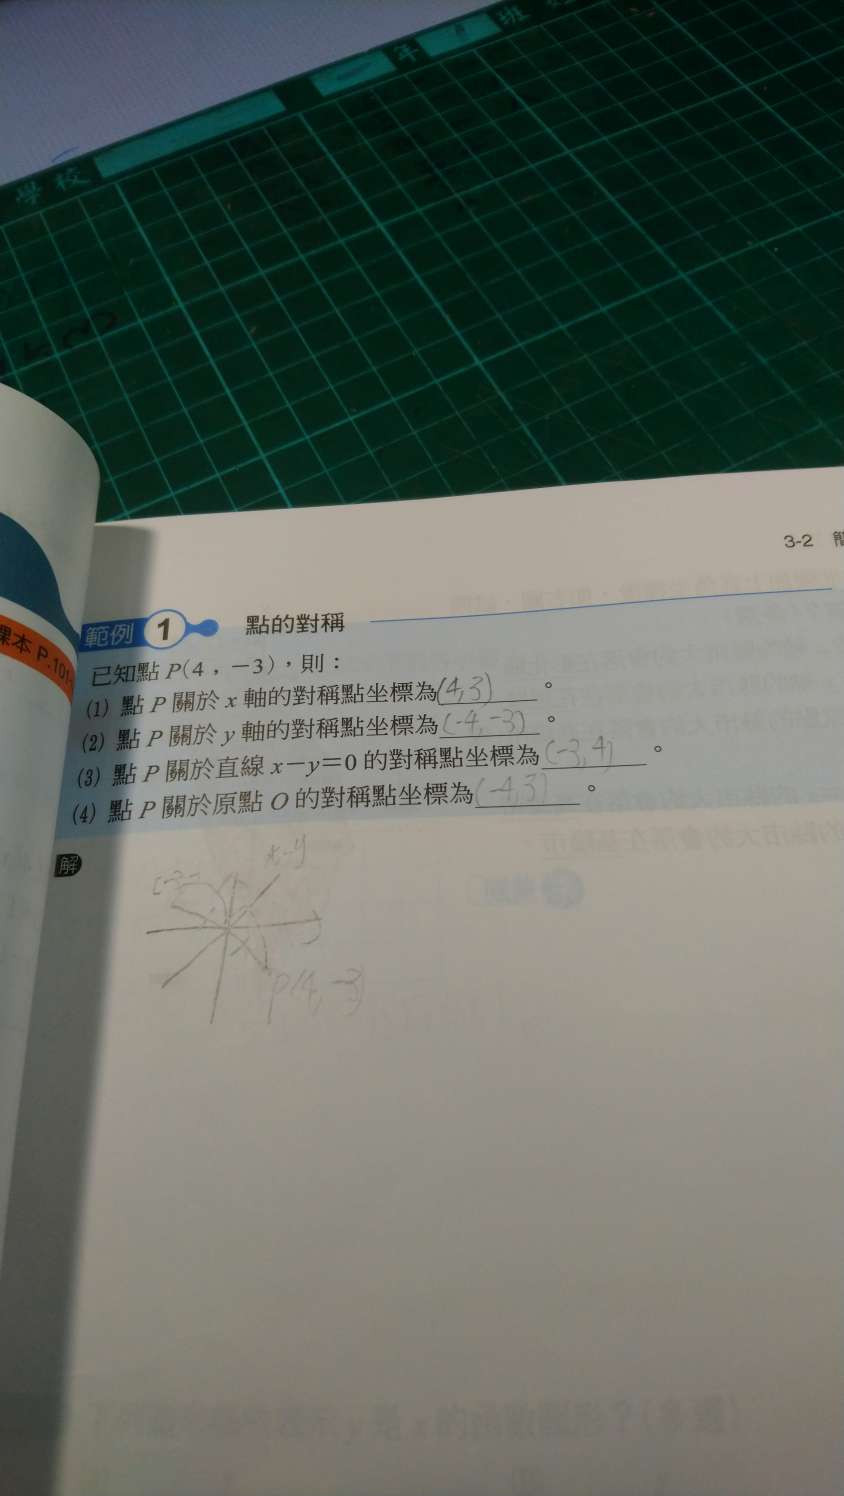 學校
年 班
3-2
課本 P.101
範例 1 點的對稱
已知點 P(4,-3),則:
(1) 點 P 關於 x 軸的對稱點坐標為(4,3)。
(2) 點 P 關於 y 軸的對稱點坐標為(-4,-3)。
(3) 點 P 關於直線 x-y=0 的對稱點坐標為(-3,4)。
(4) 點 P 關於原點 O 的對稱點坐標為(-4,3)。
解
x-y
P(4,-3)